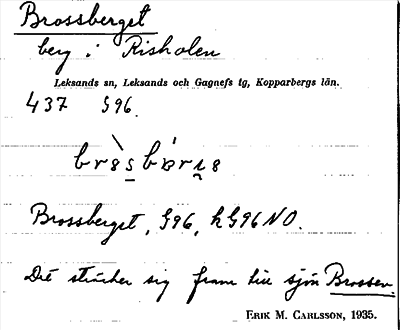 Brossberget
berg i Risholen
Leksands sn, Leksands och Gagnefs tg, Kopparbergs län.
437 G96.
Brossberget, G96, hG96NO.
Det sträcker sig fram till sjön Brossen.
ERIK M. CARLSSON, 1935.